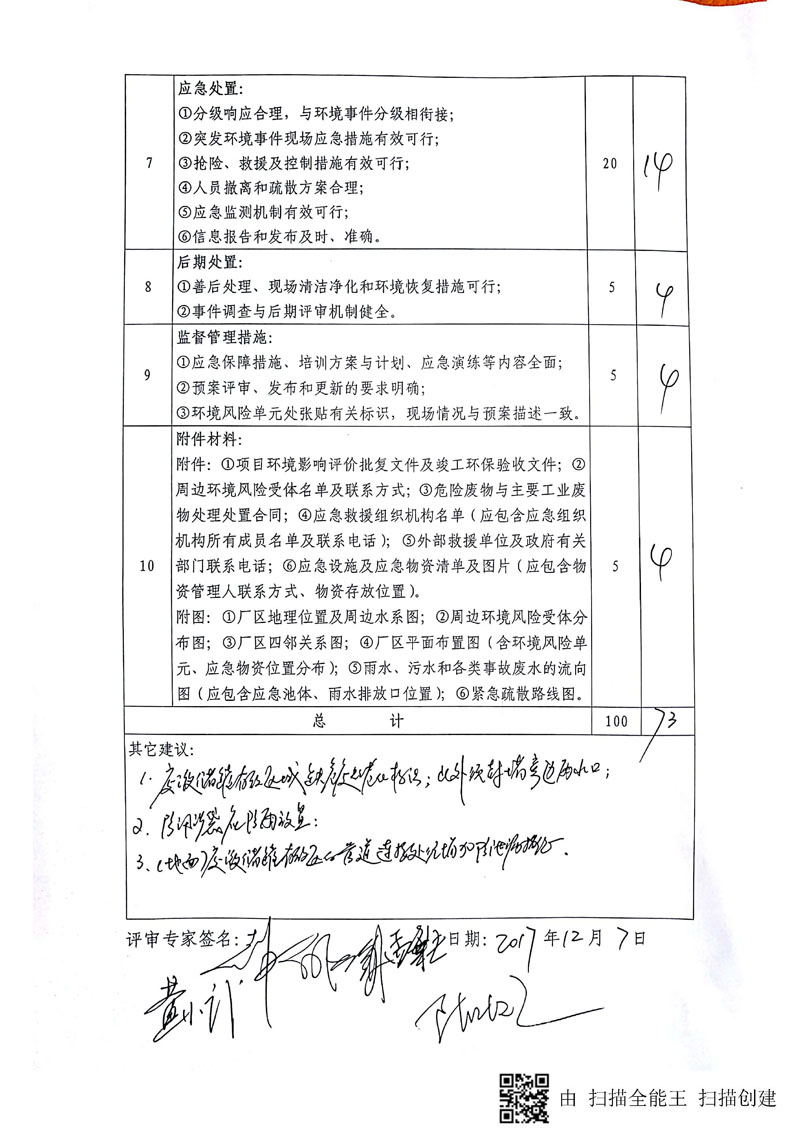 应急处置:
①分级响应合理，与环境事件分级相衔接；
②突发环境事件现场应急措施有效可行；
7 ③抢险、救援及控制措施有效可行； 20 14
④人员撤离和疏散方案合理；
⑤应急监测机制有效可行；
⑥信息报告和发布及时、准确。
后期处置:
8 ①善后处理、现场清洁净化和环境恢复措施可行； 5 4
②事件调查与后期评审机制健全。
监督管理措施:
①应急保障措施、培训方案与计划、应急演练等内容全面；
9 5 4
②预案评审、发布和更新的要求明确；
③环境风险单元处张贴有关标识，现场情况与预案描述一致。
附件材料:
附件：①项目环境影响评价批复文件及竣工环保验收文件；②
周边环境风险受体名单及联系方式；③危险废物与主要工业废
物处理处置合同；④应急救援组织机构名单（应包含应急组织
机构所有成员名单及联系电话）；⑤外部救援单位及政府有关
10 部门联系电话；⑥应急设施及应急物资清单及图片（应包含物 5 4
资管理人联系方式、物资存放位置）。
附图：①厂区地理位置及周边水系图；②周边环境风险受体分
布图；③厂区四邻关系图；④厂区平面布置图（含环境风险单
元、应急物资位置分布）；⑤雨水、污水和各类事故废水的流向
图（应包含应急池体、雨水排放口位置）；⑥紧急疏散路线图。
总 计 100 73
其它建议:
1. 废液储罐存放区域缺标识；此外须封堵旁边雨水口；
2.
3.（地面）废液储罐存放区管道连接处须增加防泄漏措施.
评审专家签名: 日期: 2017 年 12 月 7 日
黄小
由 扫描全能王 扫描创建